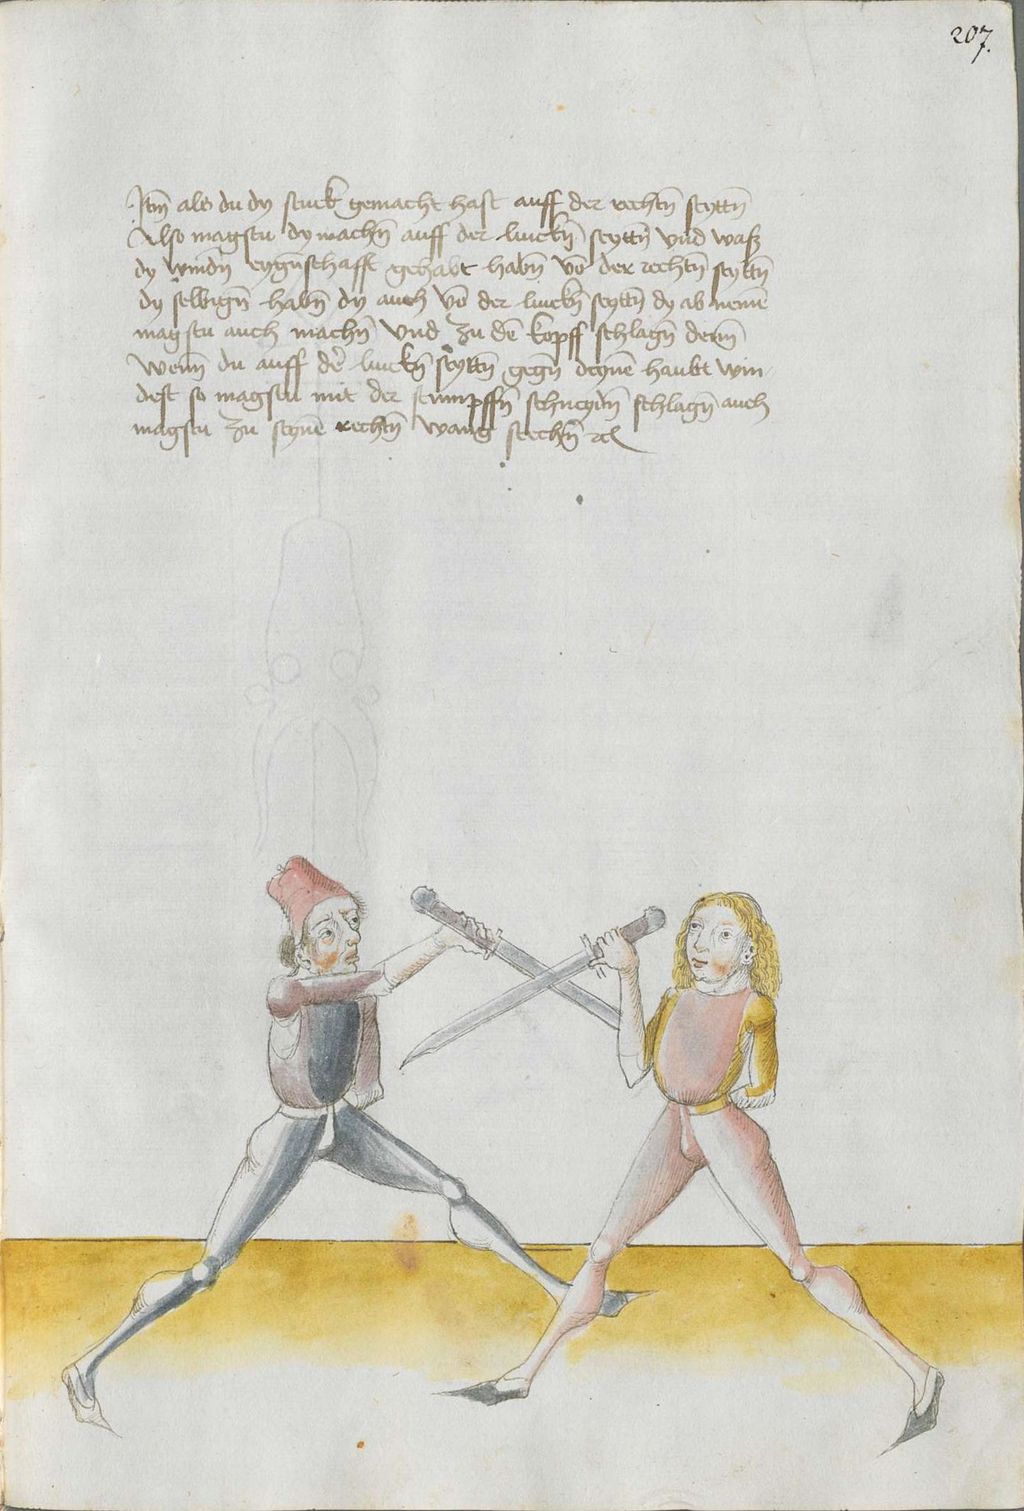 207.
Itm̄ als du dy stuck gemacht hast auff der rechtn̄ seyttn̄
Also magstu dy machn̄ auff der linckn̄ seyttn̄ vnd waß
dy windn̄ eygnschafft gehabt habn̄ vō der rechtn̄ seyttn̄
dy selbign̄ habn̄ dy auch vō der linckn̄ seyttn̄ dy ab nemē
magstu auch machn̄ vnd zu dē kopff schlagn̄ denn̄
Wenn̄ du auff der linckn̄ seyttn̄ gegn̄ deynē haubt win
dest so magstu mit der stumpffn̄ schneydn̄ schlagn̄ auch
magstu zu seynē rechtn̄ wang stechn̄ rcl